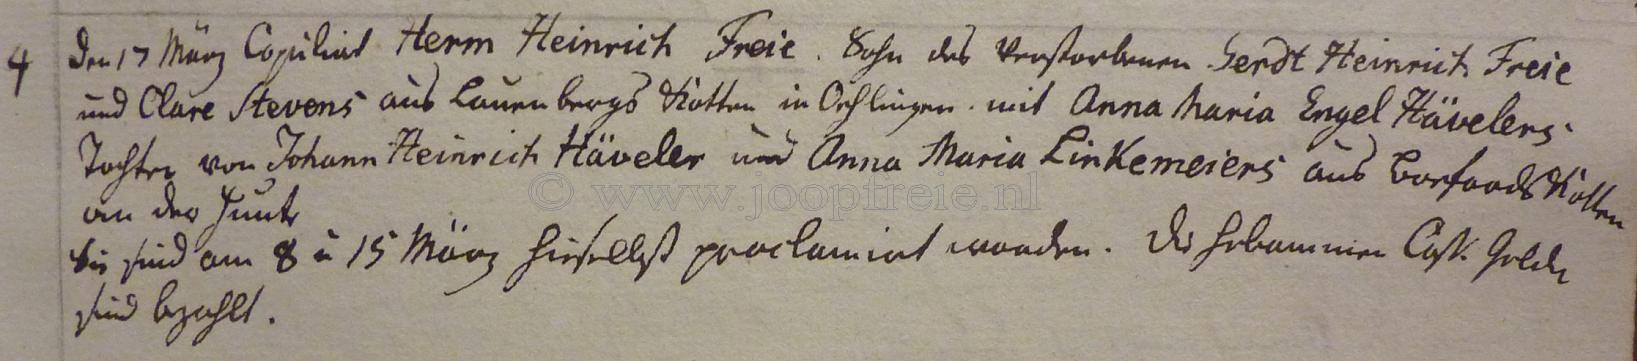 4 Den 17 März Copulirt Herm Heinrich Freie. Sohn des Verstorbenen Gerdt Heinrich Freie
und Clare Stevens aus Lauenbergs Kotten in Oehlingen. mit Anna Maria Engel Hävelers.
Tochter von Johann Heinrich Häveler und Anna Maria Linkemeiers aus Kotten
© www.joopfreie.nl
an der Hunte
Sie sind am 8 u 15 März hieselbst proclamirt worden. Die Hebammen Cass. Gelder
sind bezahlt.